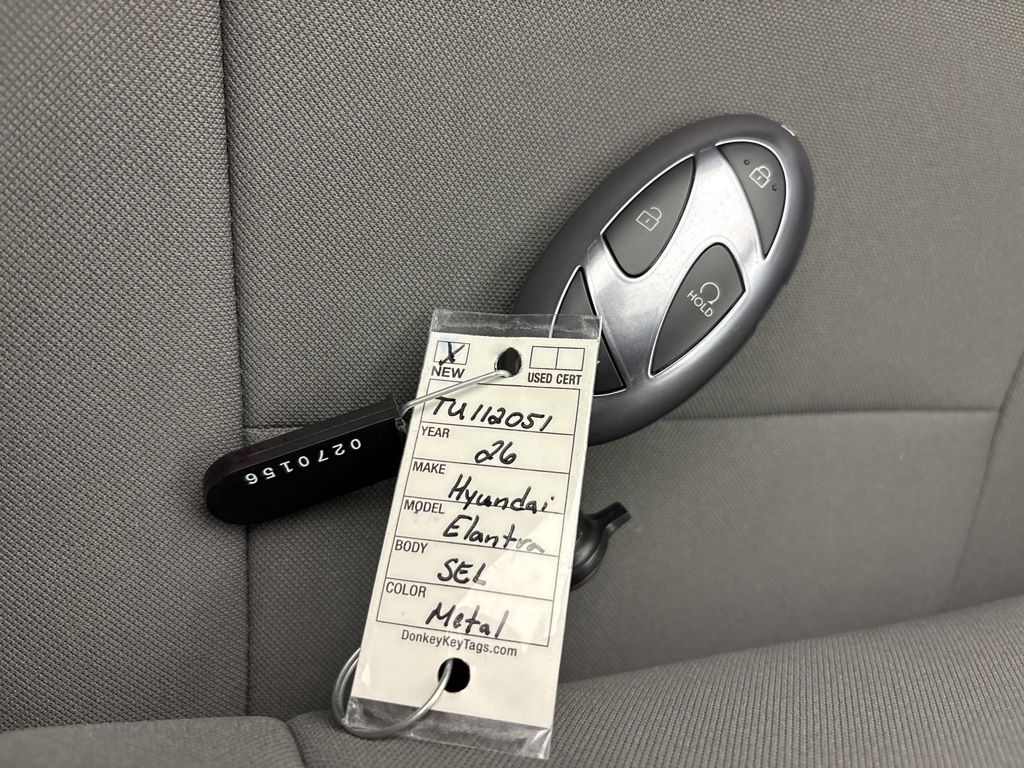 HOLD
X
NEW
USED CERT
TU112051
YEAR
26
MAKE
Hyundai
MODEL
Elantra
BODY
SEL
COLOR
Metal
DonkeyKeyTags.com
0270156